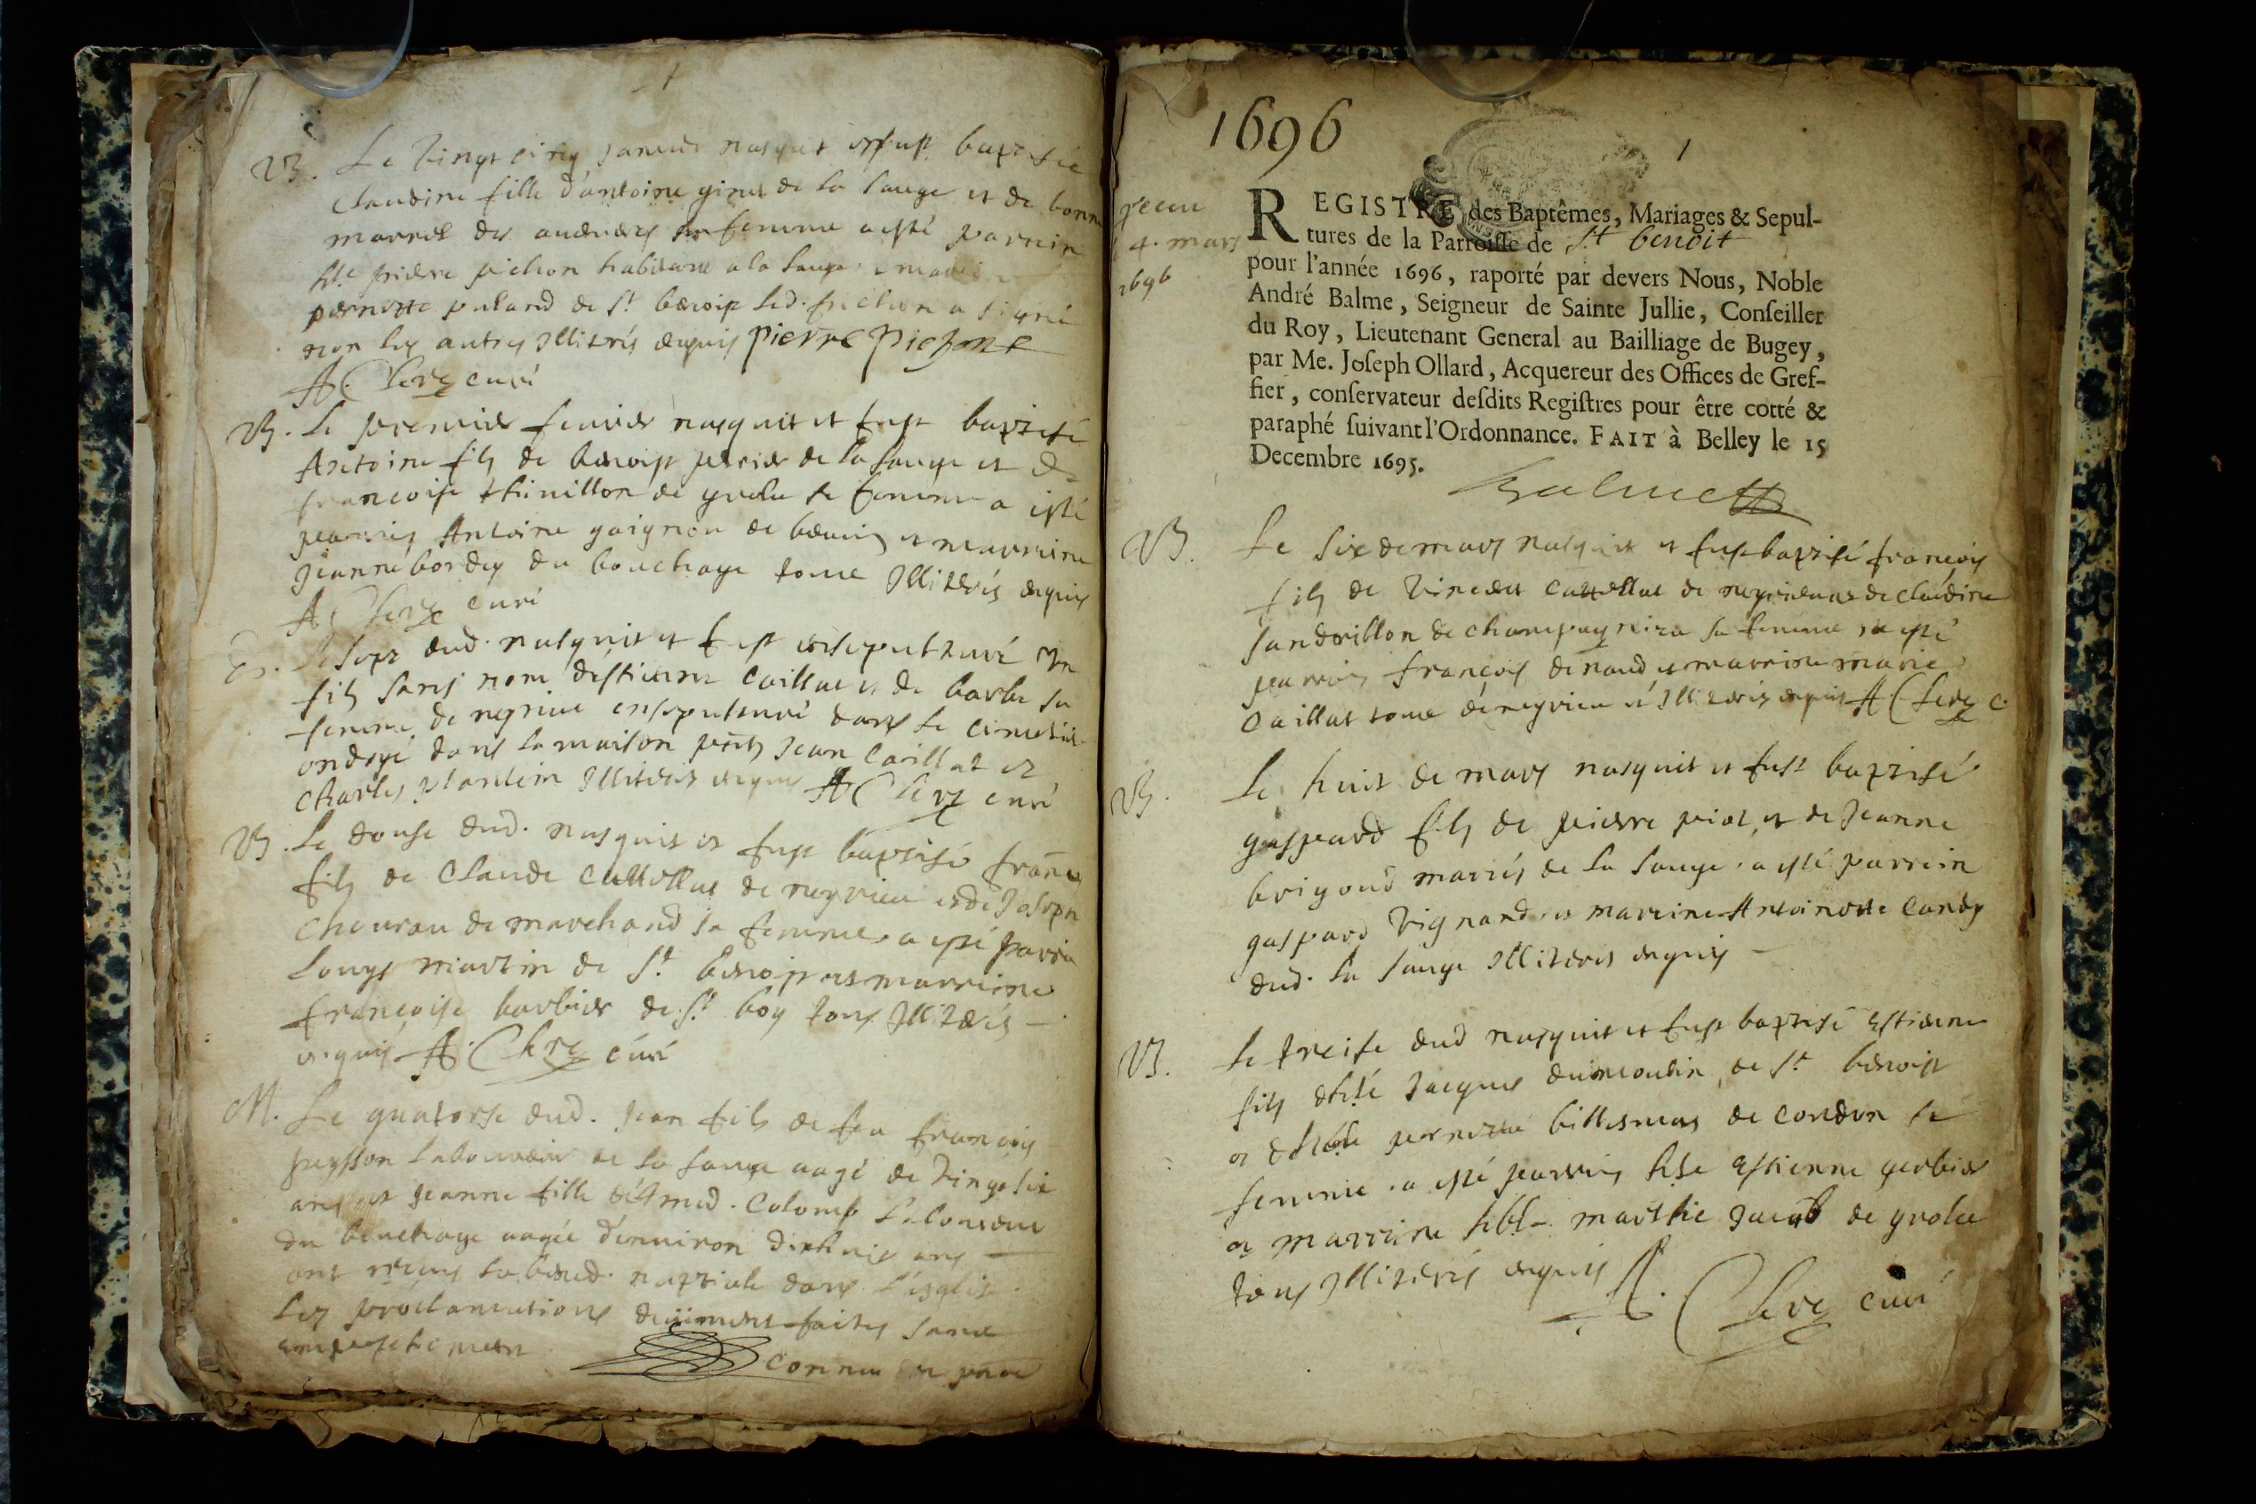 1
B. Le vingt cinq janvier nasquit et fust baptisée
Claudine fille d'antoine ginet de la sauge et de bonne
marret des auenieres sa femme a esté parrein
pichon habitant a la sauge
pernette de st benoist led. pichon a signé
non les autres illiterés enquis pierre pichont
A. Clerc curé
B. Le premier feurier nasquit et fust baptisé
Antoine fils de benoist perrier de la sauge et de
francoise de grolee sa femme a esté
parrein Antoine gaignon de et marreine
jeanne bordey du bouchage tous illiterés enquis
A Clerc curé
Le sept dud. nasquit et fust ensepulturé un
fils sans nom destienne caillat et de barbe sa
femme de neyrieu ensepulturé dans le cimetiere
ondoyé dans la maison pnts jean caillat et
charles plantein illiterés enquis A Clerc curé
B. Le douse dud. nasquit et fust baptisé franc
fils de claude cattellat de neyrieu et de joseph
cheuran de marchand sa femme a esté parrein
louys martin de st. benoist et marreine
francoise barbier de st. boy tous illiterés
enquis A. Clerc curé
M. Le quatorse dud. jean fils de feu francois
peysson laboureur de la sauge aagé de vingt six
ans et jeanne fille d'Amed. Colomb laboureur
du bouchage aagée d'enuiron dixhuit ans
ont reçus la bened. nuptiale dans l'esglise
les proclamations deüement faites sans
empeschement
connu
1696
1
receu
4. mars
1696
REGISTRE des Baptêmes, Mariages & Sepul-
tures de la Parroisse de St. benoit
pour l'année 1696, raporté par devers Nous, Noble
André Balme, Seigneur de Sainte Jullie, Conseiller
du Roy, Lieutenant General au Bailliage de Bugey,
par Me. Joseph Ollard, Acquereur des Offices de Gref-
fier, conservateur desdits Registres pour être cotté &
paraphé suivant l'Ordonnance. FAIT à Belley le 15
Decembre 1695.
Balme
B. Le six de mars nasquit et fust baptisé françois
fils de vincent cattellat de neyrieu et de claudine
sandrillon de champagnieu sa femme a esté
parrein françois denaud et marreine marie
caillat tous de neyrieu et illiterés enquis A Clerc c.
B. Le huit de mars nasquit et fust baptisé
gaspard fils de pierre piot et de jeanne
brigoud mariés de la sauge a esté parrein
gaspard vignand et marreine Antoinette candy
dud. la sauge illiterés enquis
B. Le treise dud nasquit et fust baptisé estienne
fils jacques dumoulin de st benoist
et pernette de condon sa
femme a esté parrein estienne gerbier
et marreine marthe jacob de grolee
tous illiterés enquis A. Clerc curé